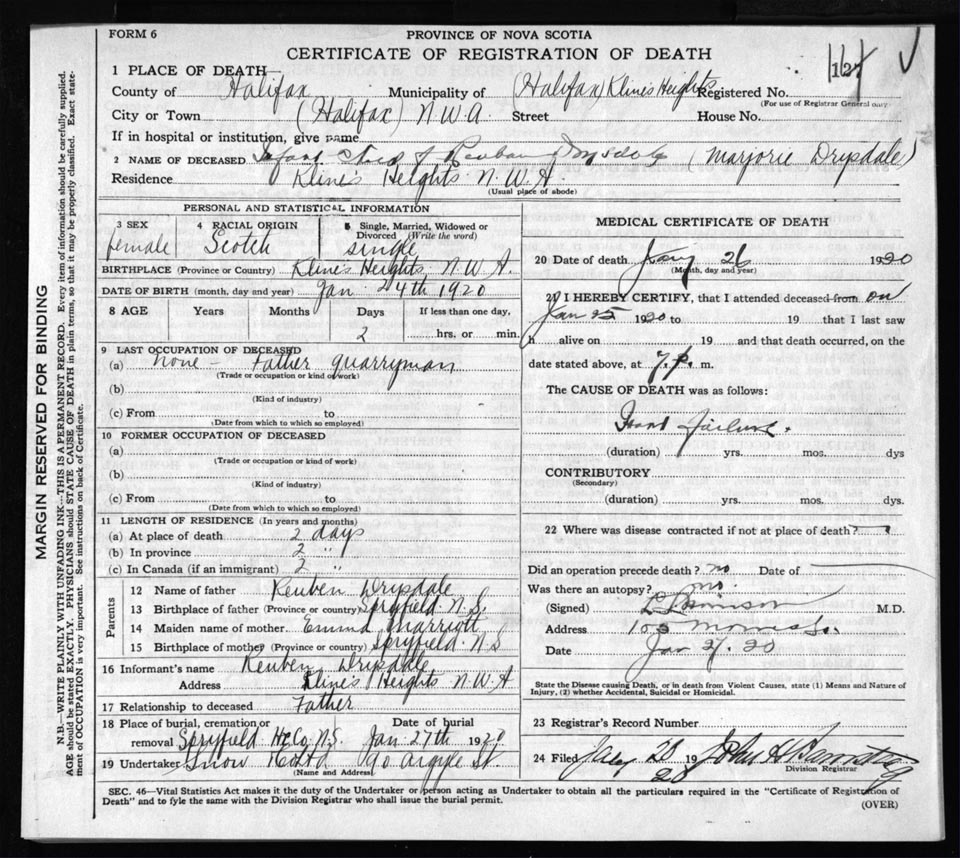 FORM 6
PROVINCE OF NOVA SCOTIA
CERTIFICATE OF REGISTRATION OF DEATH
1 PLACE OF DEATH
County of Halifax Municipality of (Halifax) Kline's Heights Registered No.
(For use of Registrar General only)
City or Town (Halifax) N.W.A Street House No.
If in hospital or institution, give name
2 NAME OF DECEASED Infant Child of (Marjorie Drysdale)
Residence Kline's Heights N.W.A.
(Usual place of abode)
PERSONAL AND STATISTICAL INFORMATION
3 SEX 4 RACIAL ORIGIN 5 Single, Married, Widowed or Divorced (Write the word)
female Scotch single
BIRTHPLACE (Province or Country) Kline's Heights, N.W.A.
DATE OF BIRTH (month, day and year) Jan 24th 1920
8 AGE Years Months Days If less than one day,
2 hrs. or min.
9 LAST OCCUPATION OF DECEASED
(a) None - Father quarryman
(Trade or occupation or kind of work)
(b)
(Kind of industry)
(c) From to
(Date from which to which so employed)
10 FORMER OCCUPATION OF DECEASED
(a)
(Trade or occupation or kind of work)
(b)
(Kind of industry)
(c) From to
(Date from which to which so employed)
11 LENGTH OF RESIDENCE (In years and months)
(a) At place of death 2 days
(b) In province 2 "
(c) In Canada (if an immigrant) 2 "
Parents
12 Name of father Reuben Drysdale
13 Birthplace of father (Province or country) Spryfield N.S.
14 Maiden name of mother Emma Marriott
15 Birthplace of mother (Province or country) Spryfield N.S
16 Informant's name Reuben Drysdale
Address Kline's Heights N.W.A
17 Relationship to deceased Father
18 Place of burial, cremation or Date of burial
removal Spryfield Hx Co N.S. Jan 27th 1920
19 Undertaker Snow 90 Argyle St
(Name and Address)
MEDICAL CERTIFICATE OF DEATH
20 Date of death Jany 26 1920
(Month, day and year)
21 I HEREBY CERTIFY, that I attended deceased from on
Jan 25 1920 to 19 that I last saw
h alive on 19 and that death occurred, on the
date stated above, at 7.p. m.
The CAUSE OF DEATH was as follows:
Heart failure.
(duration) yrs. mos. dys
CONTRIBUTORY
(Secondary)
(duration) yrs. mos. dys.
22 Where was disease contracted if not at place of death?
Did an operation precede death? no Date of
Was there an autopsy? no.
(Signed) M.D.
Address 105 Morris St.
Date Jan 27. 20
State the Disease causing Death, or in death from Violent Causes, state (1) Means and Nature of
Injury, (2) whether Accidental, Suicidal or Homicidal.
23 Registrar's Record Number
24 Filed 19 John H
Division Registrar
SEC. 46—Vital Statistics Act makes it the duty of the Undertaker or person acting as Undertaker to obtain all the particulars required in the "Certificate of Registration of
Death" and to fyle the same with the Division Registrar who shall issue the burial permit.
(OVER)
MARGIN RESERVED FOR BINDING
N.B.—WRITE PLAINLY WITH UNFADING INK—THIS IS A PERMANENT RECORD. Every item of information should be carefully supplied.
AGE should be stated EXACTLY. PHYSICIANS should STATE CAUSE OF DEATH in plain terms, so that it may be properly classified. Exact statement of OCCUPATION is very important. See instructions on back of Certificate.